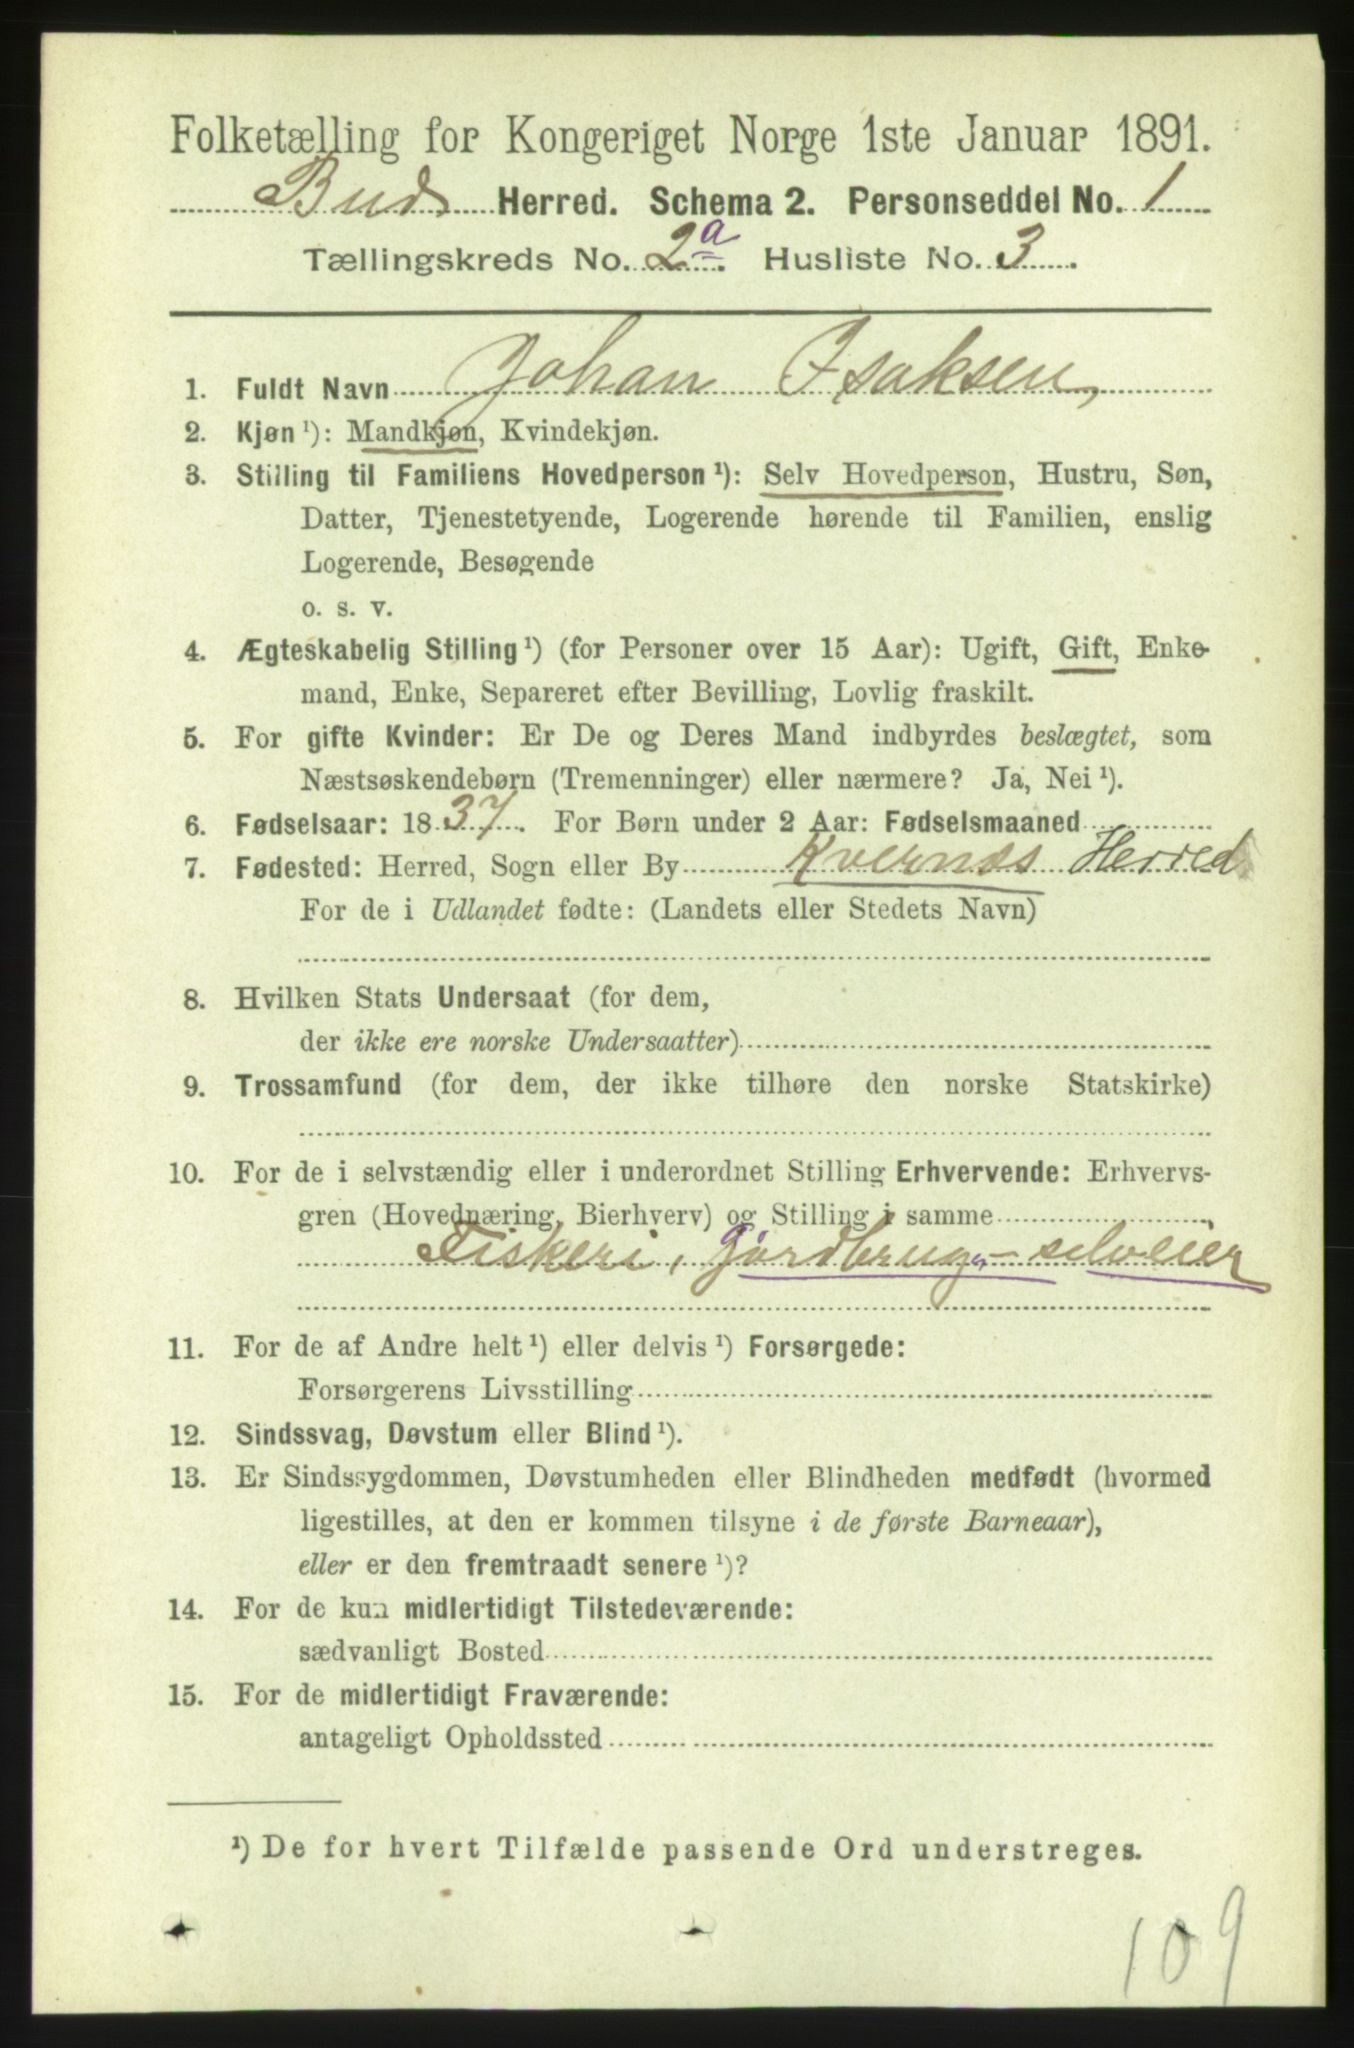 Folketælling for Kongeriget Norge 1ste Januar 1891.
Buds Herred. Schema 2. Personseddel No. 1
Tællingskreds No. 2a. Husliste No. 3.
1. Fuldt Navn Johan Isaksen,
2. Kjøn ¹): Mandkjøn, Kvindekjøn.
3. Stilling til Familiens Hovedperson ¹): Selv Hovedperson, Hustru, Søn,
Datter, Tjenestetyende, Logerende hørende til Familien, enslig
Logerende, Besøgende
o. s. v.
4. Ægteskabelig Stilling ¹) (for Personer over 15 Aar): Ugift, Gift, Enke-
mand, Enke, Separeret efter Bevilling, Lovlig fraskilt.
5. For gifte Kvinder: Er De og Deres Mand indbyrdes beslægtet, som
Næstsøskendebørn (Tremenninger) eller nærmere? Ja, Nei ¹).
6. Fødselsaar: 1837. For Børn under 2 Aar: Fødselsmaaned
7. Fødested: Herred, Sogn eller By Kvernæs Herred
For de i Udlandet fødte: (Landets eller Stedets Navn)
8. Hvilken Stats Undersaat (for dem,
der ikke ere norske Undersaatter)
9. Trossamfund (for dem, der ikke tilhøre den norske Statskirke)
10. For de i selvstændig eller i underordnet Stilling Erhvervende: Erhvervs-
gren (Hovednæring, Bierhverv) og Stilling i samme
Fiskeri, Gårdbrug, - selveier
11. For de af Andre helt ¹) eller delvis ¹) Forsørgede:
Forsørgerens Livsstilling
12. Sindssvag, Døvstum eller Blind ¹).
13. Er Sindssygdommen, Døvstumheden eller Blindheden medfødt (hvormed
ligestilles, at den er kommen tilsyne i de første Barneaar),
eller er den fremtraadt senere ¹)?
14. For de kun midlertidigt Tilstedeværende:
sædvanligt Bosted
15. For de midlertidigt Fraværende:
antageligt Opholdssted
¹) De for hvert Tilfælde passende Ord understreges.
109